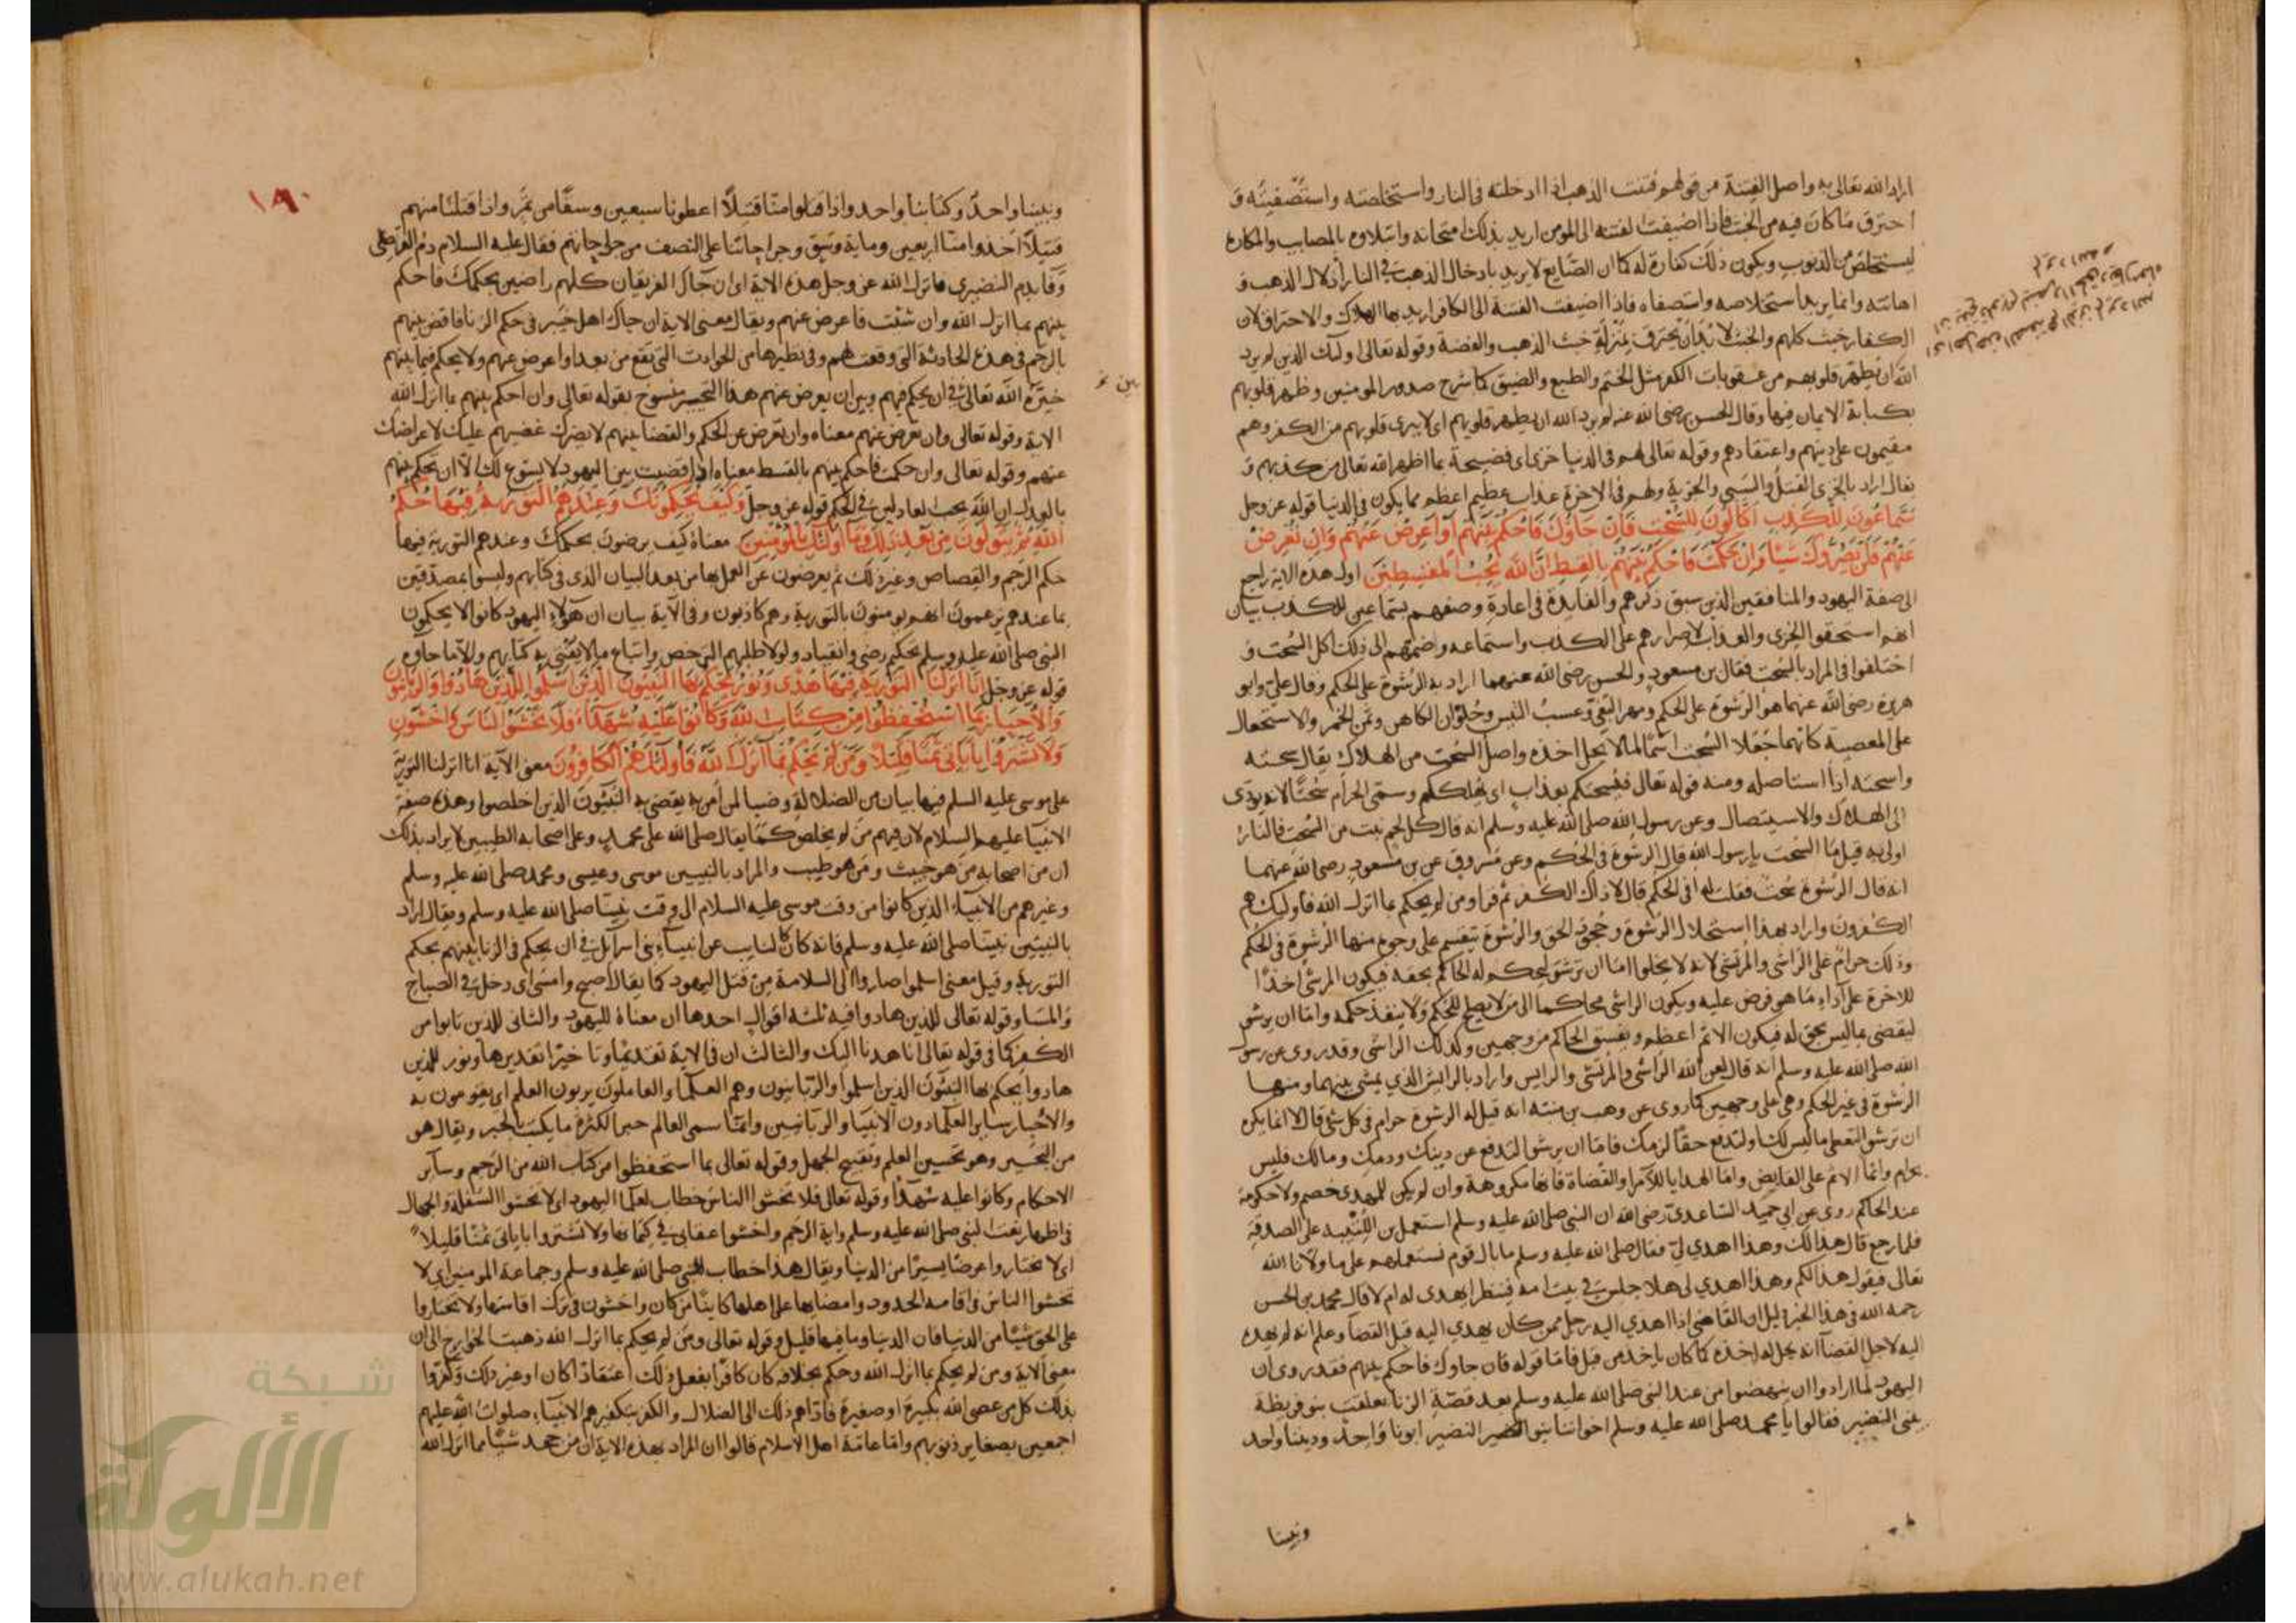 اراد الله تعالى به واصل الفتنة من قولهم فتنت الذهب اذا ادخلته في النار واستخلصته واستصفيته و
احترق ما كان فيه من الخبث فاذا اضيفت الفتنة الى المومن اريد بذلك امتحانه وابتلاوه بالمصايب والمكاره
ليستخلص من الذنوب ويكون ذلك كفارة له كما ان الصّايغ لا يريد بادخال الذهب في النار اذلال الذهب و
اهانته وانما يريد استخلاصه واستصفاه فاذا اضيفت الفتنة الى الكافر اريد بها الهلاك والاحتراق لان
الكفار خبث كلهم والخبث لا بد ان يحترق بمنزلة خبث الذهب والفضة وقوله تعالى اوليك الذين لم يرد
الله ان يطهر قلوبهم من عقوبات الكفر مثل الختم والطبع والضيق كما شرح صدور المومنين وطهر قلوبهم
بكتابة الايمان فيها وقال الحسن رضى الله عنه لم يرد الله ان يطهر قلوبهم اى لا يبرى قلوبهم من الكفر وهم
مقيمون على دينهم واعتقادهم وقوله تعالى لهم في الدنيا خزى اى فضيحة بما اظهر الله تعالى من كذبهم و
يقال اراد بالخزى القتل والسبي والجزية ولهم في الاخرة عذاب عظيم اعظم مما يكون في الدنيا قوله عز وجل
سَمّاعُونَ للكَذِب اكّالُونَ لِلسُّحْتِ فَاِنْ جَاوُكَ فَاحْكُمْ بَيْنَهُمْ اَوْ اَعْرِضْ عَنْهُمْ وَاِنْ تُعْرِضْ
عَنْهُمْ فَلَنْ يَضُرُّوكَ شَيْئًا وَاِنْ حَكَمْتَ فَاحْكُمْ بَيْنَهُمْ بِالقِسْطِ اِنَّ اللهَ يُحِبُّ المُقْسِطِينَ اول هذه الاية راجع
الى صفة اليهود والمنافقين الذين سبق ذكرهم والفايدة في اعادة وصفهم بسماعين للكذب بيان
انهم استحقوا الخزى والعذاب لاصرارهم على الكذب واستماعه واضمتهم الى ذلك اكل السُّحت و
اختلفوا في المراد بالسحت فقال بن مسعود والحسن رضى الله عنهما اراد به الرشوة على الحكم وقال علي وابو
هريرة رضى الله عنهما هو الرشوة على الحكم ومهر البغي وعسب التيس وحلوان الكاهن وثمن الخمر والاستعجال
على المعصية كانهما جعلا السحت اسمًا لما لا يحل اخذه واصل السحت من الهلاك يقال سحته
واسحته اذا استاصله ومنه قوله تعالى فيسحتكم بعذاب اى يهلككم وسمى الحرام سحتًا لانه يودى
الى الهلاك والاستيصال وعن رسول الله صلى الله عليه وسلم انه قال كل لحم نبت من السُّحت فالنار
اولى به قيل ما السحت يا رسول الله قال الرشوة في الحكم وعن مسروق عن بن مسعود رضى الله عنهما
انه قال الرشوة سحت فقلت له افى الحكم قال لا ذاك الكفر ثم قرا ومن لم يحكم بما انزل الله فاوليك هم
الكفرون واراد بهذا استحلال الرشوة وحجوق الحق والرشوة تنقسم على وجوه منها الرشوة في الحكم
وذلك حرام على الراشى والمرتشى لانه لا يخلوا اما ان ترشو ليحكم له الحاكم بحقه فيكون المرتشى اخذًا
للاخرة على اداء ما هو فرض عليه ويكون الراشى محاكما الى من لا يصلح للحكم ولا ينفذ حكمه واما ان يرشو
ليقضى بما ليس بحق له فيكون الاثم اعظم ويفسق الحاكم من وجهين وكذلك الراشى وقد روى عن رسول
الله صلى الله عليه وسلم انه قال لعن الله الراشى والمرتشى والرايش واراد بالرايش الذي يمشى بينهما ومنها
الرشوة في غير الحكم وهى على وجهين كما روى عن وهب بن منبه انه قيل له الرشوة حرام في كل شئ قال لا انما يكره
ان ترشو لتعطى ما ليس لك او لتدفع حقًا لزمك فاما ان يرشو لتدفع عن دينك ودمك ومالك فليس
بحرام وانما الاثم على القابض واما الهدايا للامرا والقضاة فانها مكروهة وان لم يكن للمهدى خصم ولا حكومة
عند الحاكم روى عن ابي حميد الساعدى رضى الله ان النبي صلى الله عليه وسلم استعمل بن اللتبية على الصدقة
فلما رجع قال هذا لك وهذا اهدي لي فقال صلى الله عليه وسلم ما بال قوم نستعملهم على ما ولانا الله
تعالى فيقول هذا لكم وهذا اهدي لي هلا جلس في بيت امه فينظر ايهدى له ام لا قال محمد بن الحسن
رحمه الله في هذا الخبر دليل ان القاضى اذا اهدي اليه رجل ممن كان يهدي اليه قبل القضا وعلم انه لم يهده
اليه لاجل القضا انه يحل له اخذه كما كان ياخذ من قبل فاما قوله فان جاوك فاحكم بينهم فقد روى ان
اليهود لما ارادوا ان ينهضوا من عند النبى صلى الله عليه وسلم بعد قصّة الزنا تعلقت بنو قريظة
ببنى النضير فقالوا يا محمد صلى الله عليه وسلم اخواننا بنو النضير ابونا واحد وديننا واحد
ونبينا
١٨٠
ونبينا واحد وكتابنا واحد واذا قتلوا منا قتيلًا اعطونا سبعين وسقًا من تمر واذا قتلنا منهم
قتيلًا اخذوا منا اربعين وماية وسق وجراحاتنا على النصف من جراحاتهم فقال عليه السلام دم القرظى
وفا بدم النضيرى فانزل الله عز وجل هذه الاية اى ان جاك الفريقان كلهم راضين بحكمك فاحكم
بينهم بما انزل الله وان شئت فاعرض عنهم ويقال معنى الاية ان جاك اهل خيبر في حكم الزنا فاقض بينهم
بالرجم في هذه الحادثة التى وقعت لهم وفي نظيرها من الحوادث التى تقع من بعد او اعرض عنهم ولا يحكم فيما بينهم
خيّره الله تعالى في ان يحكم فيهم وبين ان يعرض عنهم هذا التخيير منسوخ بقوله تعالى وان احكم بينهم بما انزل الله
بين
الاية وقوله تعالى وان تعرض عنهم معناه وان تعرض عن الحكم والقضا بينهم لا يضرك غضبهم عليك لاعراضك
عنهم وقوله تعالى وان حكمت فاحكم بينهم بالقسط معناه اذا قضيت بين اليهود لا يسوغ لك الا ان تحكم بينهم
بالعدل ان الله يحب العادلين في الحكم قوله عز وجل وَكَيْفَ يُحَكِّمُونَكَ وَعِنْدَهُمُ التَوْرَيةُ فِيْهَا حُكْمُ
اللهِ ثمَّ يَتَولَّونَ مِن بَعْدِ ذَلِكَ وَمَا اُولَئِكَ بالمُؤْمِنِينَ معناه كيف يرضون بحكمك وعندهم التورية فيها
حكم الرجم والقصاص وغير ذلك ثم يعرضون عن العمل بها من بعد البيان الذى في كتابهم وليسوا بمصدقين
بما عندهم يزعمون انهم يومنون بالتورية وهم كاذبون وفي الاية بيان ان هؤلاء اليهود كانوا لا يحكمون
النبى صلى الله عليه وسلم تحكيم رضى وانقياد ولولا طلبهم الترخص واتباع ما لا يفتى به كتابهم والا ما جاوه
قوله عز وجل اِنّا اَنْزَلْنَا التَّوْرَيةَ فِيْهَا هُدًى وَنُورٌ يَحْكُمُ بِهَا النَّبِيُّونَ الَّذينَ اَسْلَمُوا لِلَّذِينَ هَادُوا وَالرَّبَانِيُّونَ
وَالاَحْبَارُ بِمَا اسْتُحْفِظُوا مِنْ كِتَابِ اللهِ وَكَانُوا عَلَيْهِ شُهَدَاءَ فَلَا تَخْشَوُا النَّاسَ وَاخْشَوْنِ
وَلَا تَشْتَرُوا بِايَاتِى ثَمَنًا قَلِيْلًا وَمَن لَمْ يَحْكُمْ بِمَا اَنْزَلَ اللهُ فَاُولَئِكَ هُمُ الكَافِرُونَ معنى الاية انا انزلنا التورية
على موسى عليه السلم فيها بيان من الضلالة وضيا لمن امر به يقضى به النبيون الذين اخلصوا وهذه صفة
الانبيا عليهم السلام لان فيهم من لم يخلص كما يقال صلى الله على محمد وعلى اصحابه الطيبين لا يراد بذلك
ان من اصحابه من هو خبيث ومن هو طيب والمراد بالنبيين موسى وعيسى ومحمد صلى الله عليه وسلم
وغيرهم من الانبياء الذين كانوا من وقت موسى عليه السلام الى وقت نبينا صلى الله عليه وسلم ويقال اراد
بالنبيين نبينا صلى الله عليه وسلم فانه كان كالنايب عن انبياء بنى اسرائيل في ان يحكم في الزنا بينهم بحكم
التورية وقيل معنى اسلموا صاروا الى السلامة من قتل اليهود كما يقال اصبح وامسى اى دخل في الصباح
والمسا وقوله تعالى للذين هادوا فيه ثلثه اقوال احدها ان معناه لليهود والثانى للذين تابوا من
الكفر كما في قوله تعالى انا هدنا اليك والثالث ان في الاية تقديمًا وتاخيرًا تقديرها ونور للذين
هادوا يحكم بها النبيّون الذين اسلموا والربانيون وهم العلما والعاملون يربون العلم اى يقومون به
والاحبار ساير العلما دون الانبيا والربانيين وانما سمى العالم حبرا لكثرة ما يكتب بالحبر ويقال هو
من التحبير وهو تحسين العلم وتقبيح الجهل وقوله تعالى بما استحفظوا من كتاب الله من الرجم وساير
الاحكام وكانوا عليه شهدا وقوله تعالى فلا تخشوا الناس خطاب لعلما اليهود اى لا تخشوا السفلة والجهال
في اظهار نعت النبى صلى الله عليه وسلم واية الرجم واخشوا عقابى في كتمانها ولا تشتروا باياتى ثمنًا قليلًا
اى لا تختاروا عرضًا يسيرًا من الدنيا ويقال هذا خطاب للنبى صلى الله عليه وسلم وجماعة المومنين اى لا
تخشوا الناس في اقامة الحدود وامضايها على اهلها كاينًا من كان واخشون في ترك اقامتها ولا تختاروا
على الحق شيئًا من الدنيا فان الدنيا وما فيها قليل وقوله تعالى ومن لم يحكم بما انزل الله ذهبت الخوارج الى ان
معنى الاية ومن لم يحكم بما انزل الله وحكم بخلافه كان كافرًا بفعل ذلك اعتقادًا كان او غير ذلك وكفّروا
بذلك كل من عصى الله بكبيرة او صغيرة فاداهم ذلك الى الضلال والكفر بتكفيرهم الانبياء صلوات الله عليهم
اجمعين بصغاير ذنوبهم واما عامة اهل الاسلام قالوا ان المراد بهذه الاية ان من جحد شيئًا مما انزل الله
شبكة
الألوكة
www.alukah.net